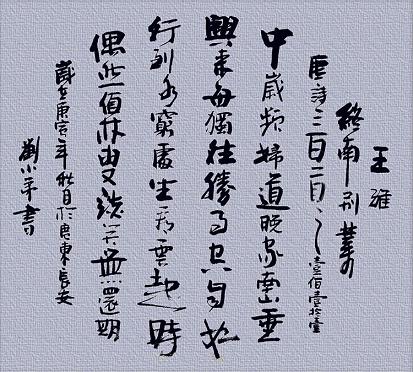 王維
終南別業
唐詩三百首之壹佰壹拾壹
中歲頗好道晚家南山垂
興來每獨往勝事空自知
行到水窮處坐看雲起時
偶然值林叟談笑無還期
歲在庚寅年秋月於廣東長安
劉小平書